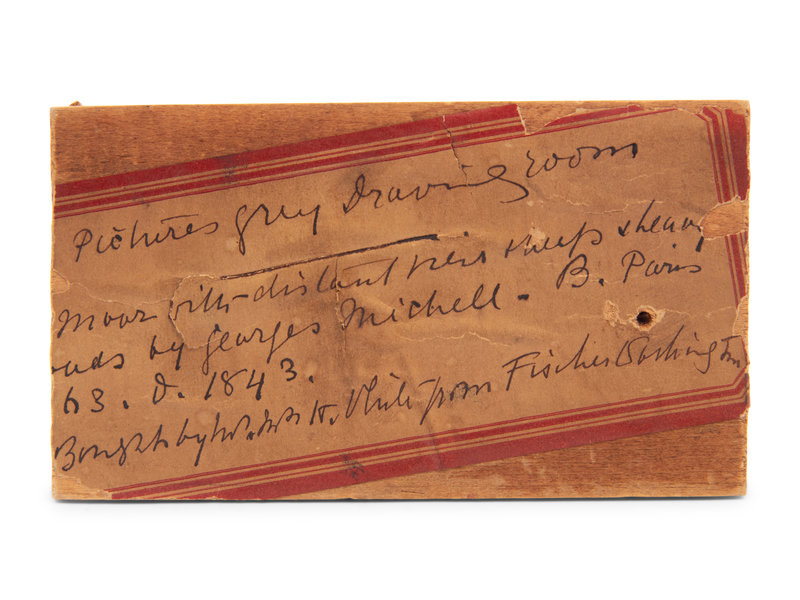 Pictures grey Drawing room
Moor with distant view sheep & heavy
ouds by Georges Michell - B. Paris
63. d. 1843.
Bought by H. White from Fischer Washington